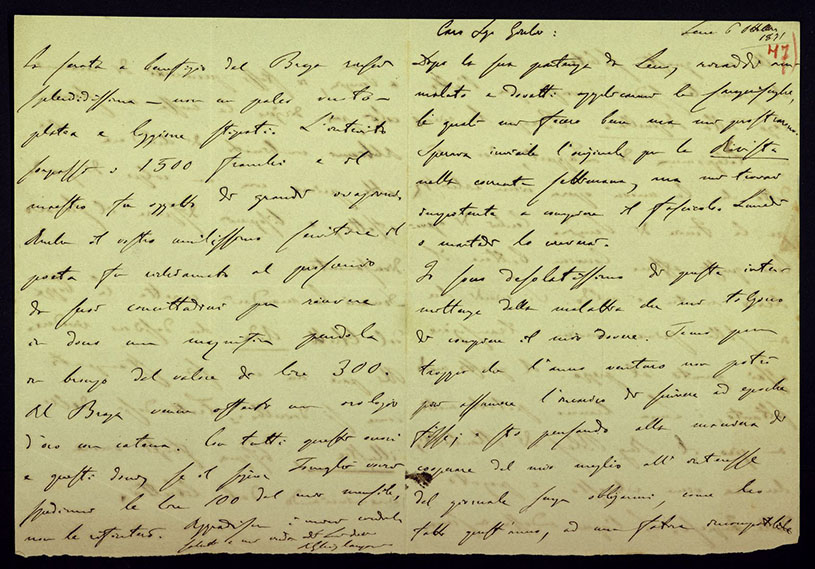 Caro Sigr Giulio:
Lecco 6 Ottobre
1871
47
Dopo la sua partenza da Lecco, ricaddi am-
malato e dovetti applicarmi le sanguisughe,
le quali mi fecero bene ma mi prostrarono.
Sperava inviarle l'originale per la Rivista
nella corrente settimana, ma mi trovai
impotente a compiere il fascicolo. Lunedì
o martedì lo riceverà.
Io sono desolatissimo di queste inter
mittenze della malattia che mi tolgono
di compiere il mio dovere. Temo pur
troppo che l'anno venturo non potrò
più assumere l'incarico di scrivere ad epoche
fisse; sto pensando alla maniera di
cooperare del mio meglio all'interesse
del giornale senza obbligarmi, come ho
fatto quest'anno, ad una fatica incompatibile
La serata a benefizio del Braga riuscì
splendidissima — non un palco vuoto —
platea e loggione stipati. L'introito
sorpassò i 1500 franchi e il
maestro fu oggetto di grandi ovazioni
Anche il vostro umilissimo servitore il
poeta fu richiamato al proscenio
da suoi concittadini per ricevere
in dono una magnifica pendola
in bronzo del valore di lire 300.
Al Braga venne offerto un orologio
d'oro con catena. Con tutti questi onori
e questi doni, se il signor vorrà
spedirmi le lire 100 del mio mensile,
non le rifiuterò. Aggradisca i miei cordiali
saluti e mi creda
AGhislanzoni